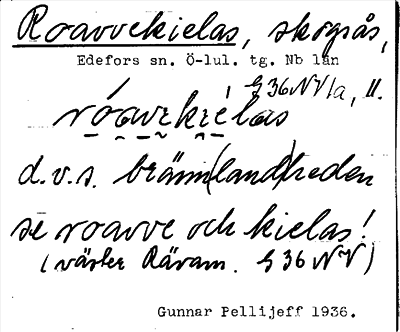 Roavvekielas, skogsås,
Edefors sn. Ö-lul. tg. Nb län
§ 36 NV 1a, 11.
róavekìelas
d.v.s. bränn(land)heden
se roavve och kielas!
(väster Råvam. § 36 NV)
Gunnar Pellijeff 1936.